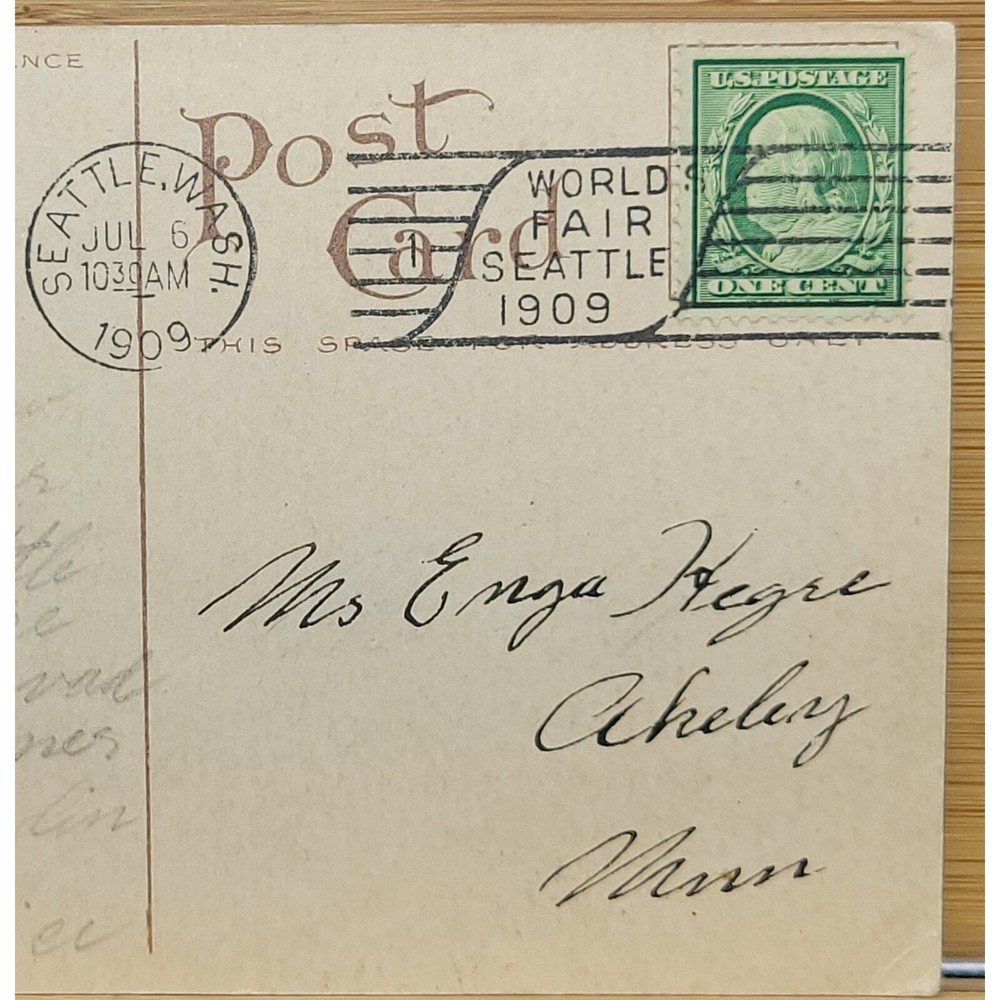 NCE
Post
Card
SEATTLE, WASH.
JUL 6
1030AM
1909
1
WORLD'S
FAIR
SEATTLE
1909
U.S. POSTAGE
ONE CENT
THIS SPACE FOR ADDRESS ONLY
Ms Enga Hegre
Akeley
Minn